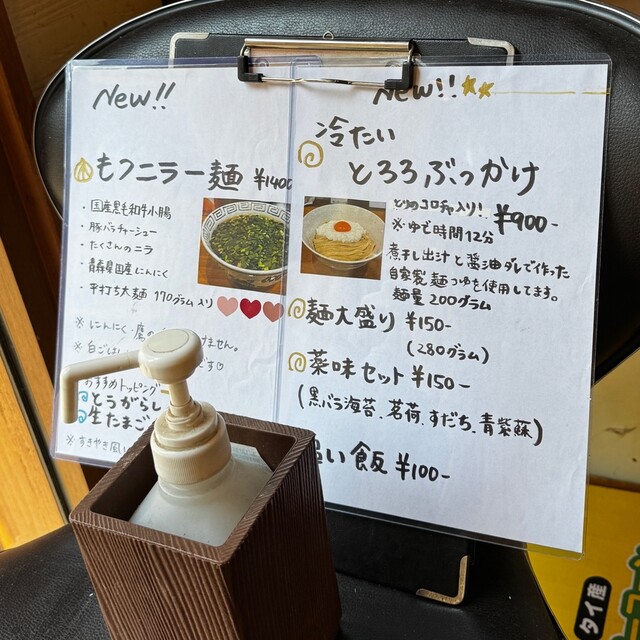 New!!
もつニラ一麺 ¥1400
・国産黒毛和牛小腸
・豚バラチャーシュー
・たくさんのニラ
・青森県国産にんにく
・平打ち太麺 170グラム入り
※にんにく・
けません。
※白ごは
す♡
おすすめトッピング
とうがらし
生たまご
※すきやき風
New!!
冷たい
とろろぶっかけ
¥900-
※ゆで時間12分
煮干し出汁と醤油ダレで作った
自家製麺つゆを使用してます。
麺量 200グラム
麺大盛り ¥150-
(280グラム)
薬味セット ¥150-
(黒バラ海苔、茗荷、すだち、青紫蘇)
い飯 ¥100-
タイ産